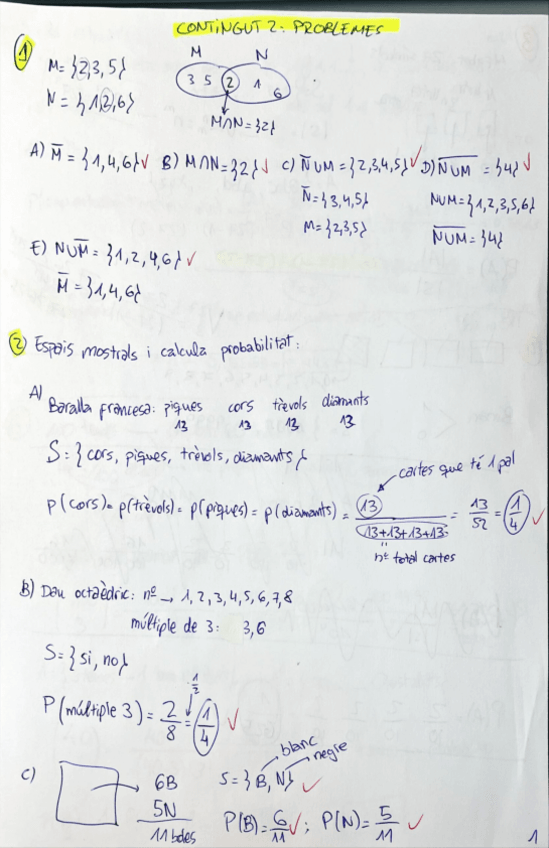 CONTINGUT 2: PROBLEMES
1
M N
M = {2,3,5}
3 5 2 1 6
N = {1,2,6}
M∩N = {2}
A) M̅ = {1,4,6} ✓ B) M∩N = {2} ✓ C) N̅∪M = {2,3,4,5} ✓ D) N̅∪̅M̅ = {4} ✓
N̅ = {3,4,5} N∪M = {1,2,3,5,6}
M = {2,3,5} N̅∪̅M̅ = {4}
E) N∪M̅ = {1,2,4,6} ✓
M̅ = {1,4,6}
2 Espais mostrals i calcula probabilitat:
A) Baralla francesa: piques cors trèvols diamants
13 13 13 13
S = {cors, piques, trèvols, diamants}
cartes que té 1 pal
p(cors) = p(trèvols) = p(piques) = p(diamants) = 13/(13+13+13+13) = 13/52 = 1/4 ✓
nº total cartes
B) Dau octaèdric: nº → 1, 2, 3, 4, 5, 6, 7, 8
múltiple de 3: 3, 6
S = {si, no}
:1/2
P(múltiple 3) = 2/8 = 1/4 ✓
blanc
negre
C) 6B S = {B, N} ✓
5N
11 boles P(B) = 6/11 ✓; P(N) = 5/11 ✓
1